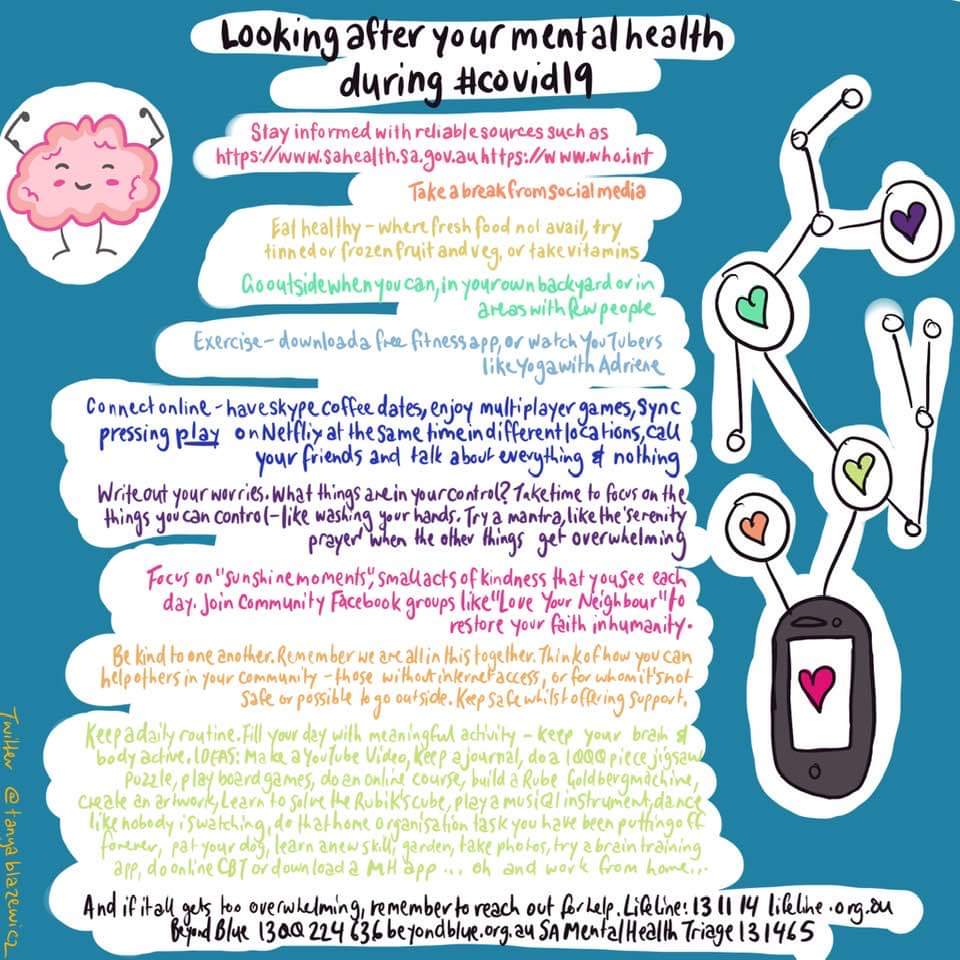 Looking after your mental health
during #covid19
Stay informed with reliable sources such as
https://www.sahealth.sa.gov.au https://www.who.int
Take a break from social media
Eat healthy - where fresh food not avail, try
tinned or frozen fruit and veg, or take vitamins
Go outside when you can, in your own backyard or in
areas with few people
Exercise - download a free fitness app, or watch YouTubers
like Yoga with Adriene
Connect online - have skype coffee dates, enjoy multiplayer games, sync
pressing play on Netflix at the same time in different locations, call
your friends and talk about everything & nothing
Write out your worries. What things are in your control? Take time to focus on the
things you can control - like washing your hands. Try a mantra, like the 'serenity
prayer' when the other things get overwhelming
Focus on "sunshine moments", small acts of kindness that you see each
day. Join Community Facebook groups like "Love Your Neighbour" to
restore your faith in humanity.
Be kind to one another. Remember we are all in this together. Think of how you can
help others in your community - those without internet access, or for whom it's not
safe or possible to go outside. Keep safe whilst offering support.
Keep a daily routine. Fill your day with meaningful activity - keep your brain &
body active. IDEAS: Make a YouTube Video, Keep a journal, do a 1000 piece jigsaw
puzzle, play board games, do an online course, build a Rube Goldberg machine,
create an artwork, Learn to solve the Rubik's cube, play a musical instrument, dance
like nobody is watching, do that home organisation task you have been putting off
forever, pat your dog, learn a new skill, garden, take photos, try a brain training
app, do online CBT or download a MH app ... oh and work from home...
And if it all gets too overwhelming, remember to reach out for help. Lifeline: 13 11 14 lifeline.org.au
Beyond Blue 1300 224 636 beyondblue.org.au SA Mental Health Triage 131465
Twitter @tanyablazewicz